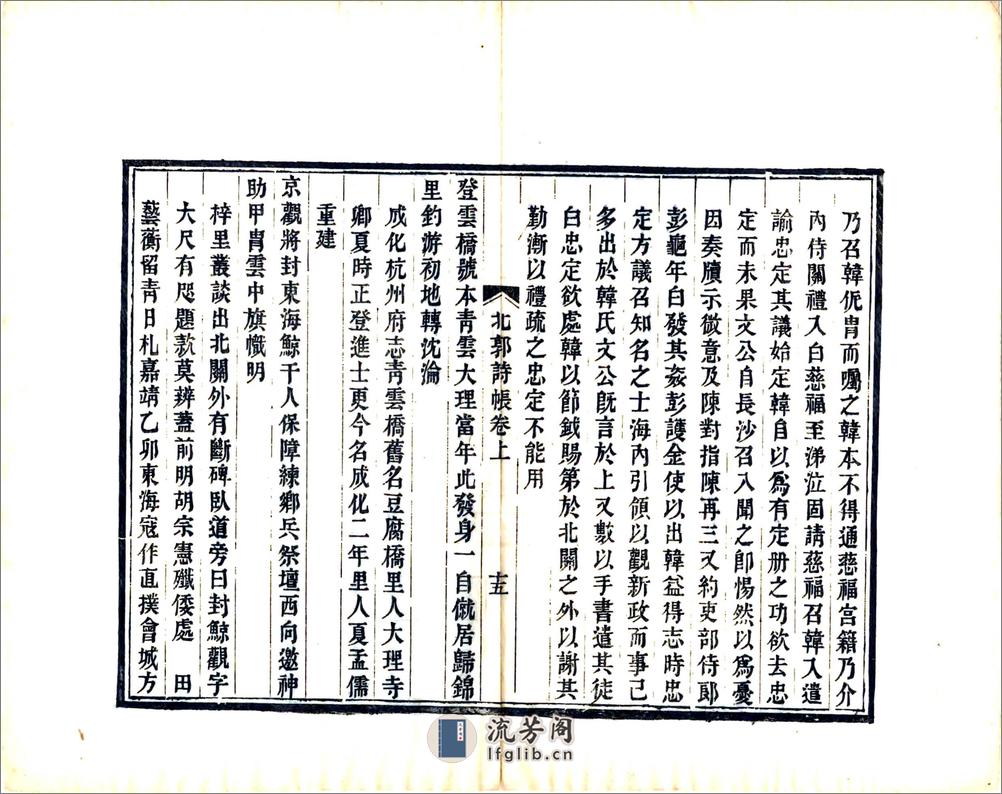 乃召韓侂胄而囑之韓本不得通慈福宮籍乃介
內侍關禮入白慈福至涕泣固請慈福召韓入遣
諭忠定其議始定韓自以爲有定册之功欲去忠
定而未果文公自長沙召入聞之卽惕然以爲憂
因奏牘示微意及陳對指陳再三又約吏部侍郞
彭龜年白發其姦彭護金使以出韓益得志時忠
定方議召知名之士海內引領以觀新政而事已
多出於韓氏文公旣言於上又數以手書遣其徒
白忠定欲處韓以節鉞賜第於北關之外以謝其
勤漸以禮疏之忠定不能用
北郭詩帳卷上
十五
登雲橋號本青雲大理當年此發身一自僦居歸錦
里釣游初地轉沈淪
成化杭州府志青雲橋舊名豆腐橋里人大理寺
卿夏時正登進士更今名成化二年里人夏孟儒
重建
京觀將封東海鯨千人保障練鄉兵祭壇西向邀神
助甲胄雲中旗幟明
梓里叢談出北關外有斷碑臥道旁曰封鯨觀字
大尺有咫題款莫辨蓋前明胡宗憲殲倭處 田
藝蘅留青日札嘉靖乙卯東海寇作直撲會城方
流芳阁
lfglib.cn